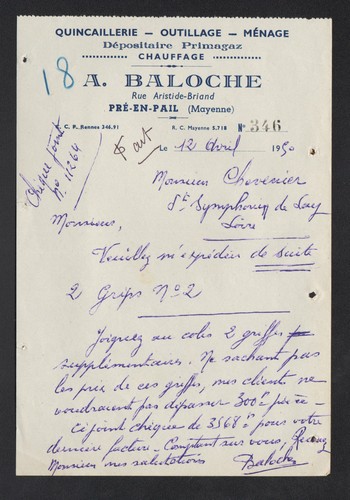 QUINCAILLERIE — OUTILLAGE — MÉNAGE
Dépositaire Primagaz
CHAUFFAGE
18
A. BALOCHE
Rue Aristide-Briand
PRÉ-EN-PAIL (Mayenne)
C. P. Rennes 346.91
R. C. Mayenne 5.718
N° 346
Chèque joint
n° 11264
Le 12 Avril 1950
Monsieur Chavanier
St Symphorien de Lay
Loire
Monsieur,
Veuillez m'expédier de suite
2 Grips N° 2
Joignez au colis 2 griffes
supplémentaires. Ne sachant pas
les prix de ces griffes, mes clients ne
voudraient pas dépasser 300
ci joint chèque de 3568 pour votre
dernière facture. Comptant sur vous, Recevez
Monsieur mes salutations
Baloche